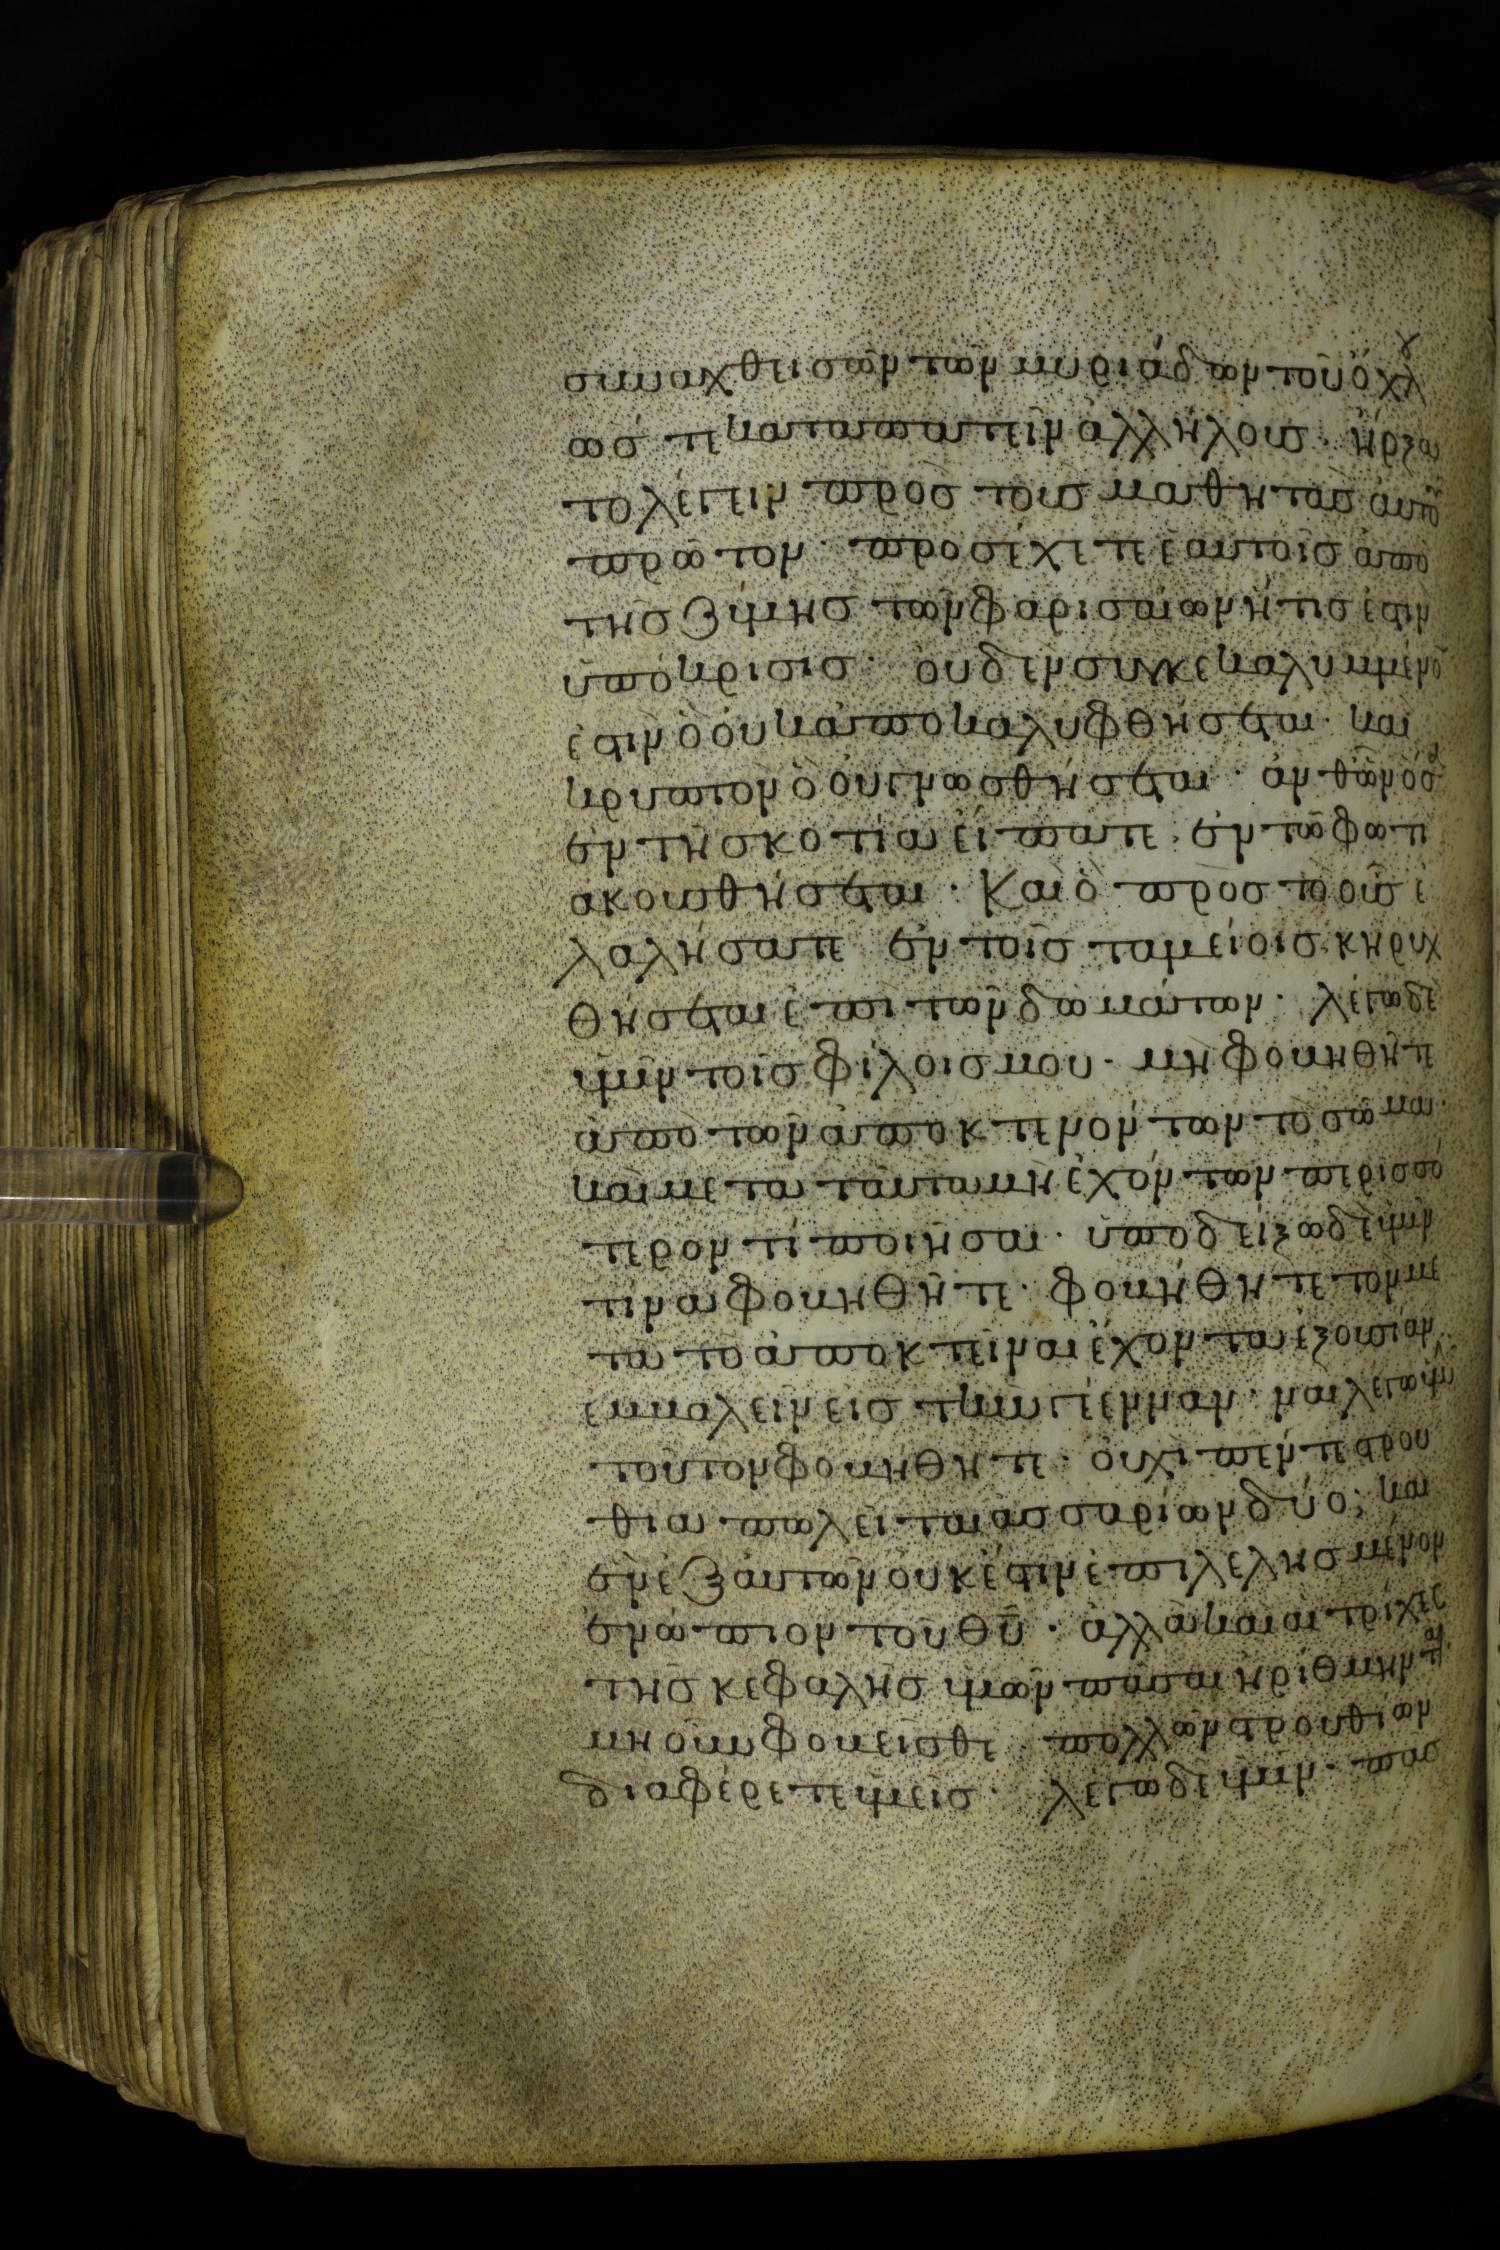 συναχθεισῶν τῶν μυριάδων τοῦ ὄχλου
ὥστε καταπατεῖν ἀλλήλους· ἤρξα
το λέγειν πρὸς τοὺς μαθητὰς αὐτοῦ
πρῶτον· προσέχετε ἑαυτοῖς ἀπὸ
τῆς ζύμης τῶν φαρισαίων ἥτις ἐστὶν
ὑπόκρισις· οὐδὲν συγκεκαλυμμένον
ἐστὶν ὃ οὐκ ἀποκαλυφθήσεται· καὶ
κρυπτὸν ὃ οὐ γνωσθήσεται· ἀνθ ὧν ὅσα
ἐν τῇ σκοτία εἴπατε· ἐν τῶ φωτὶ
ἀκουσθήσεται· Καὶ ὃ πρὸς τὸ οὖς ἐ
λαλήσατε ἐν τοῖς ταμείοις κηρυχ
θήσεται ἐπὶ τῶν δωμάτων· λέγω δὲ
ὑμῖν τοῖς φίλοις μου· μὴ φοβηθῆτε
ἀπὸ τῶν ἀποκτενόντων τὸ σῶμα·
καὶ μετὰ ταῦτα μὴ ἐχόντων περισσό
τερόν τι ποιῆσαι· ὑποδείξω δὲ ὑμῖν
τίνα φοβηθῆτε· φοβήθητε τὸν με
τὰ τὸ ἀποκτεῖναι ἔχοντα ἐξουσίαν
ἐμβαλεῖν εἰς τὴν γέενναν· ναὶ λέγω ὑμῖν
τοῦτον φοβήθητε· οὐχὶ πέντε στρου
θία πωλεῖται ἀσσαρίων δύο; καὶ
ἓν ἐξ αὐτῶν οὐκ ἔστιν ἐπιλελησμένον
ἐνώπιον τοῦ θῦ· ἀλλὰ καὶ αἱ τρίχες
τῆς κεφαλῆς ὑμῶν πᾶσαι ἠρίθμηνται
μὴ οὖν φοβεῖσθε· πολλῶν στρουθίων
διαφέρετε ὑμεῖς· λέγω δὲ ὑμῖν· πᾶς